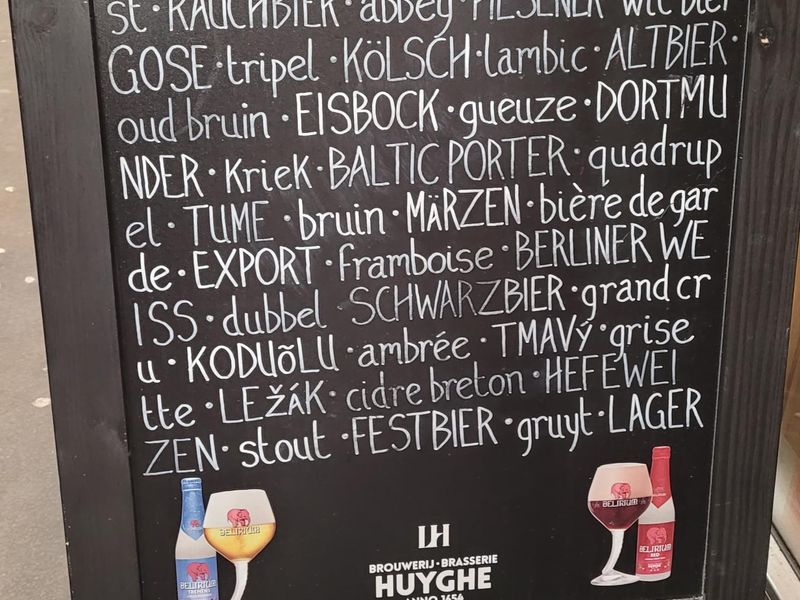 st · RAUCHBIER · abbey · PILSENER · wit bier
GOSE · tripel · KÖLSCH · lambic · ALTBIER ·
oud bruin · EISBOCK · gueuze · DORTMU
NDER · Kriek · BALTIC PORTER · quadrup
el · TUME · bruin · MÄRZEN · bière de gar
de · EXPORT · framboise · BERLINER WE
ISS · dubbel SCHWARZBIER · grand cr
u · KODUÕLU · ambrée · TMAVÝ · grise
tte · LEŽÁK · cidre breton · HEFEWEI
ZEN · stout · FESTBIER · gruyt · LAGER
DELIRIUM
DELIRIUM
TREMENS
LH
BROUWERIJ · BRASSERIE
HUYGHE
ANNO 1654
DELIRIUM
DELIRIUM
RED
HUYGHE